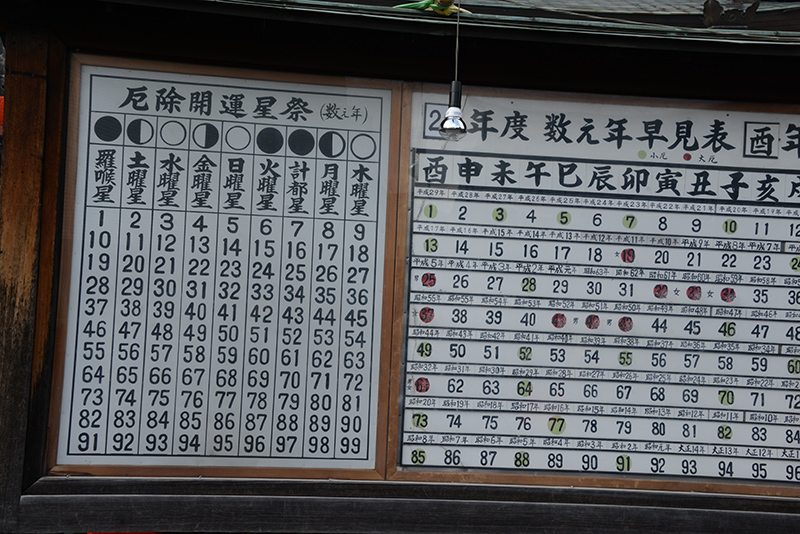 厄除開運星祭(数え年)
羅喉星 土曜星 水曜星 金曜星 日曜星 火曜星 計都星 月曜星 木曜星
1 2 3 4 5 6 7 8 9
10 11 12 13 14 15 16 17 18
19 20 21 22 23 24 25 26 27
28 29 30 31 32 33 34 35 36
37 38 39 40 41 42 43 44 45
46 47 48 49 50 51 52 53 54
55 56 57 58 59 60 61 62 63
64 65 66 67 68 69 70 71 72
73 74 75 76 77 78 79 80 81
82 83 84 85 86 87 88 89 90
91 92 93 94 95 96 97 98 99
年度 数え年早見表 酉年
小厄 大厄
酉 申 未 午 巳 辰 卯 寅 丑 子 亥
平成29年 平成28年 平成27年 平成26年 平成25年 平成24年 平成23年 平成22年 平成21年 平成20年 平成19年
1 2 3 4 5 6 7 8 9 10 11 12
平成17年 平成16年 平成15年 平成14年 平成13年 平成12年 平成11年 平成10年 平成9年 平成8年 平成7年
13 14 15 16 17 18 19 20 21 22 23 24
平成5年 平成4年 平成3年 平成2年 平成元年 昭和63年 昭和62年 昭和61年 昭和60年 昭和59年
25 26 27 28 29 30 31 32 33 35 36
昭和56年 昭和55年 昭和54年 昭和53年 昭和52年 昭和51年 昭和50年 昭和49年 昭和48年 昭和47年 昭和46年
37 38 39 40 44 45 46 47 48
昭和44年 昭和43年 昭和42年 昭和41年 昭和40年 昭和39年 昭和38年 昭和37年 昭和36年 昭和35年 昭和34年
49 50 51 52 53 54 55 56 57 58 59 60
昭和32年 昭和31年 昭和30年 昭和29年 昭和28年 昭和27年 昭和26年 昭和25年 昭和24年 昭和23年 昭和22年
61 62 63 64 65 66 67 68 69 70 71 72
昭和20年 昭和19年 昭和18年 昭和17年 昭和16年 昭和15年 昭和14年 昭和13年 昭和12年 昭和11年 昭和10年
73 74 75 76 77 78 79 80 81 82 83 84
昭和8年 昭和7年 昭和6年 昭和5年 昭和4年 昭和3年 昭和2年 昭和元年 大正14年 大正13年 大正12年
85 86 87 88 89 90 91 92 93 94 95 96